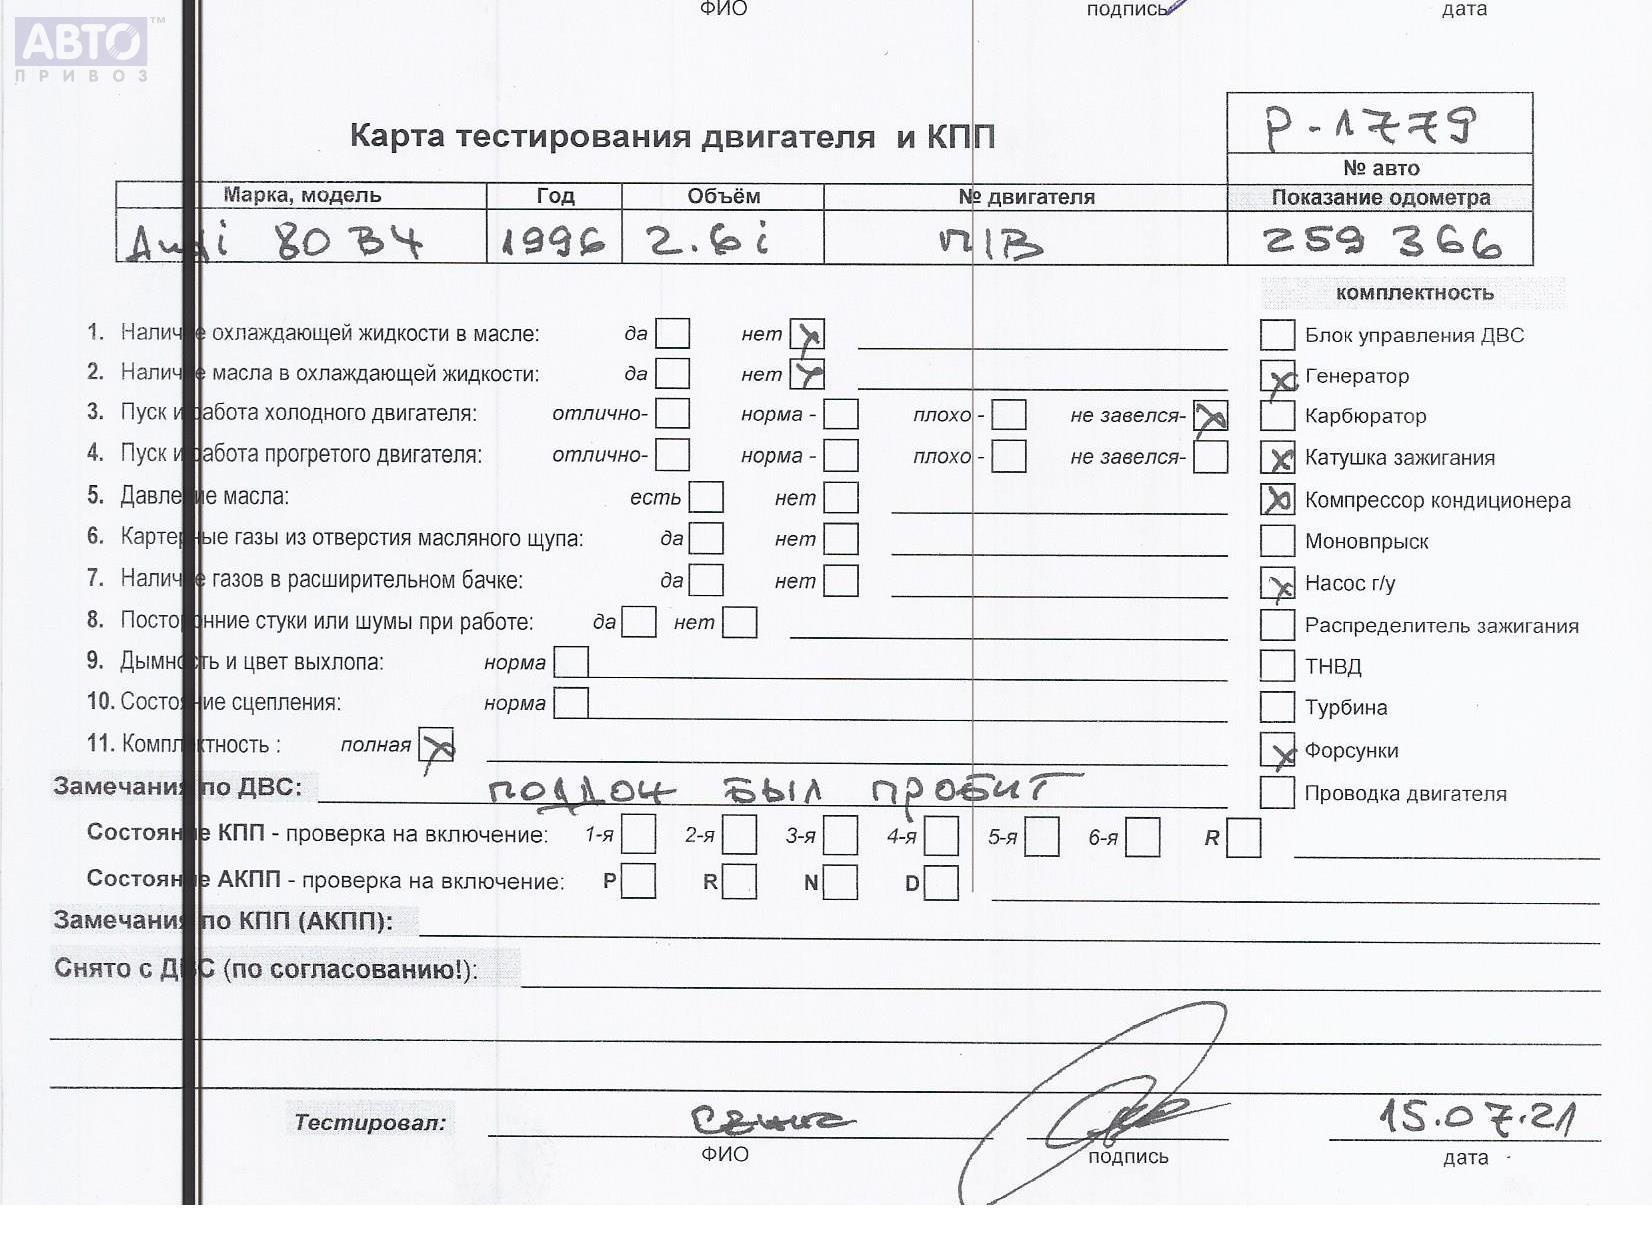 ФИО подпись дата
АВТО ™
ПРИВОЗ
P-1779
Карта тестирования двигателя и КПП
№ авто
Марка, модель Год Объём № двигателя Показание одометра
Audi 80 B4 1996 2.6i 259 366
комплектность
1. Наличие охлаждающей жидкости в масле: да нет x Блок управления ДВС
2. Наличие масла в охлаждающей жидкости: да нет x x Генератор
3. Пуск и работа холодного двигателя: отлично- норма - плохо - не завелся- x Карбюратор
4. Пуск и работа прогретого двигателя: отлично- норма - плохо - не завелся- x Катушка зажигания
5. Давление масла: есть нет x Компрессор кондиционера
6. Картерные газы из отверстия масляного щупа: да нет Моновпрыск
7. Наличие газов в расширительном бачке: да нет x Насос г/у
8. Посторонние стуки или шумы при работе: да нет Распределитель зажигания
9. Дымность и цвет выхлопа: норма ТНВД
10. Состояние сцепления: норма Турбина
11. Комплектность : полная x x Форсунки
Замечания по ДВС: поддон был пробит Проводка двигателя
Состояние КПП - проверка на включение: 1-я 2-я 3-я 4-я 5-я 6-я R
Состояние АКПП - проверка на включение: P R N D
Замечания по КПП (АКПП):
Снято с ДВС (по согласованию!):
Тестировал: 15.07.21
ФИО подпись дата